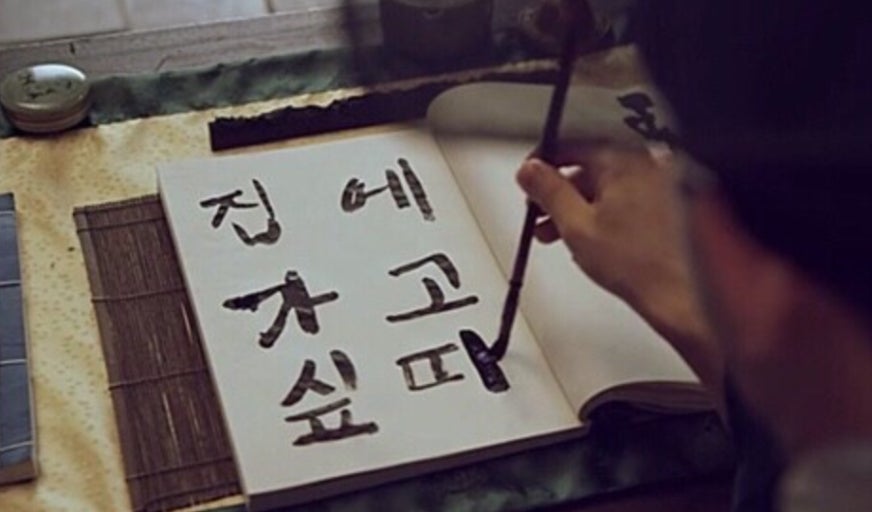 집에
가고
싶